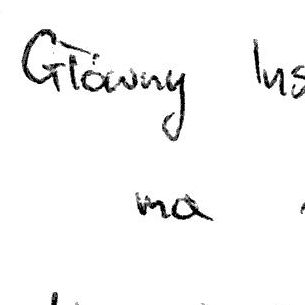 Główny Ins
ma